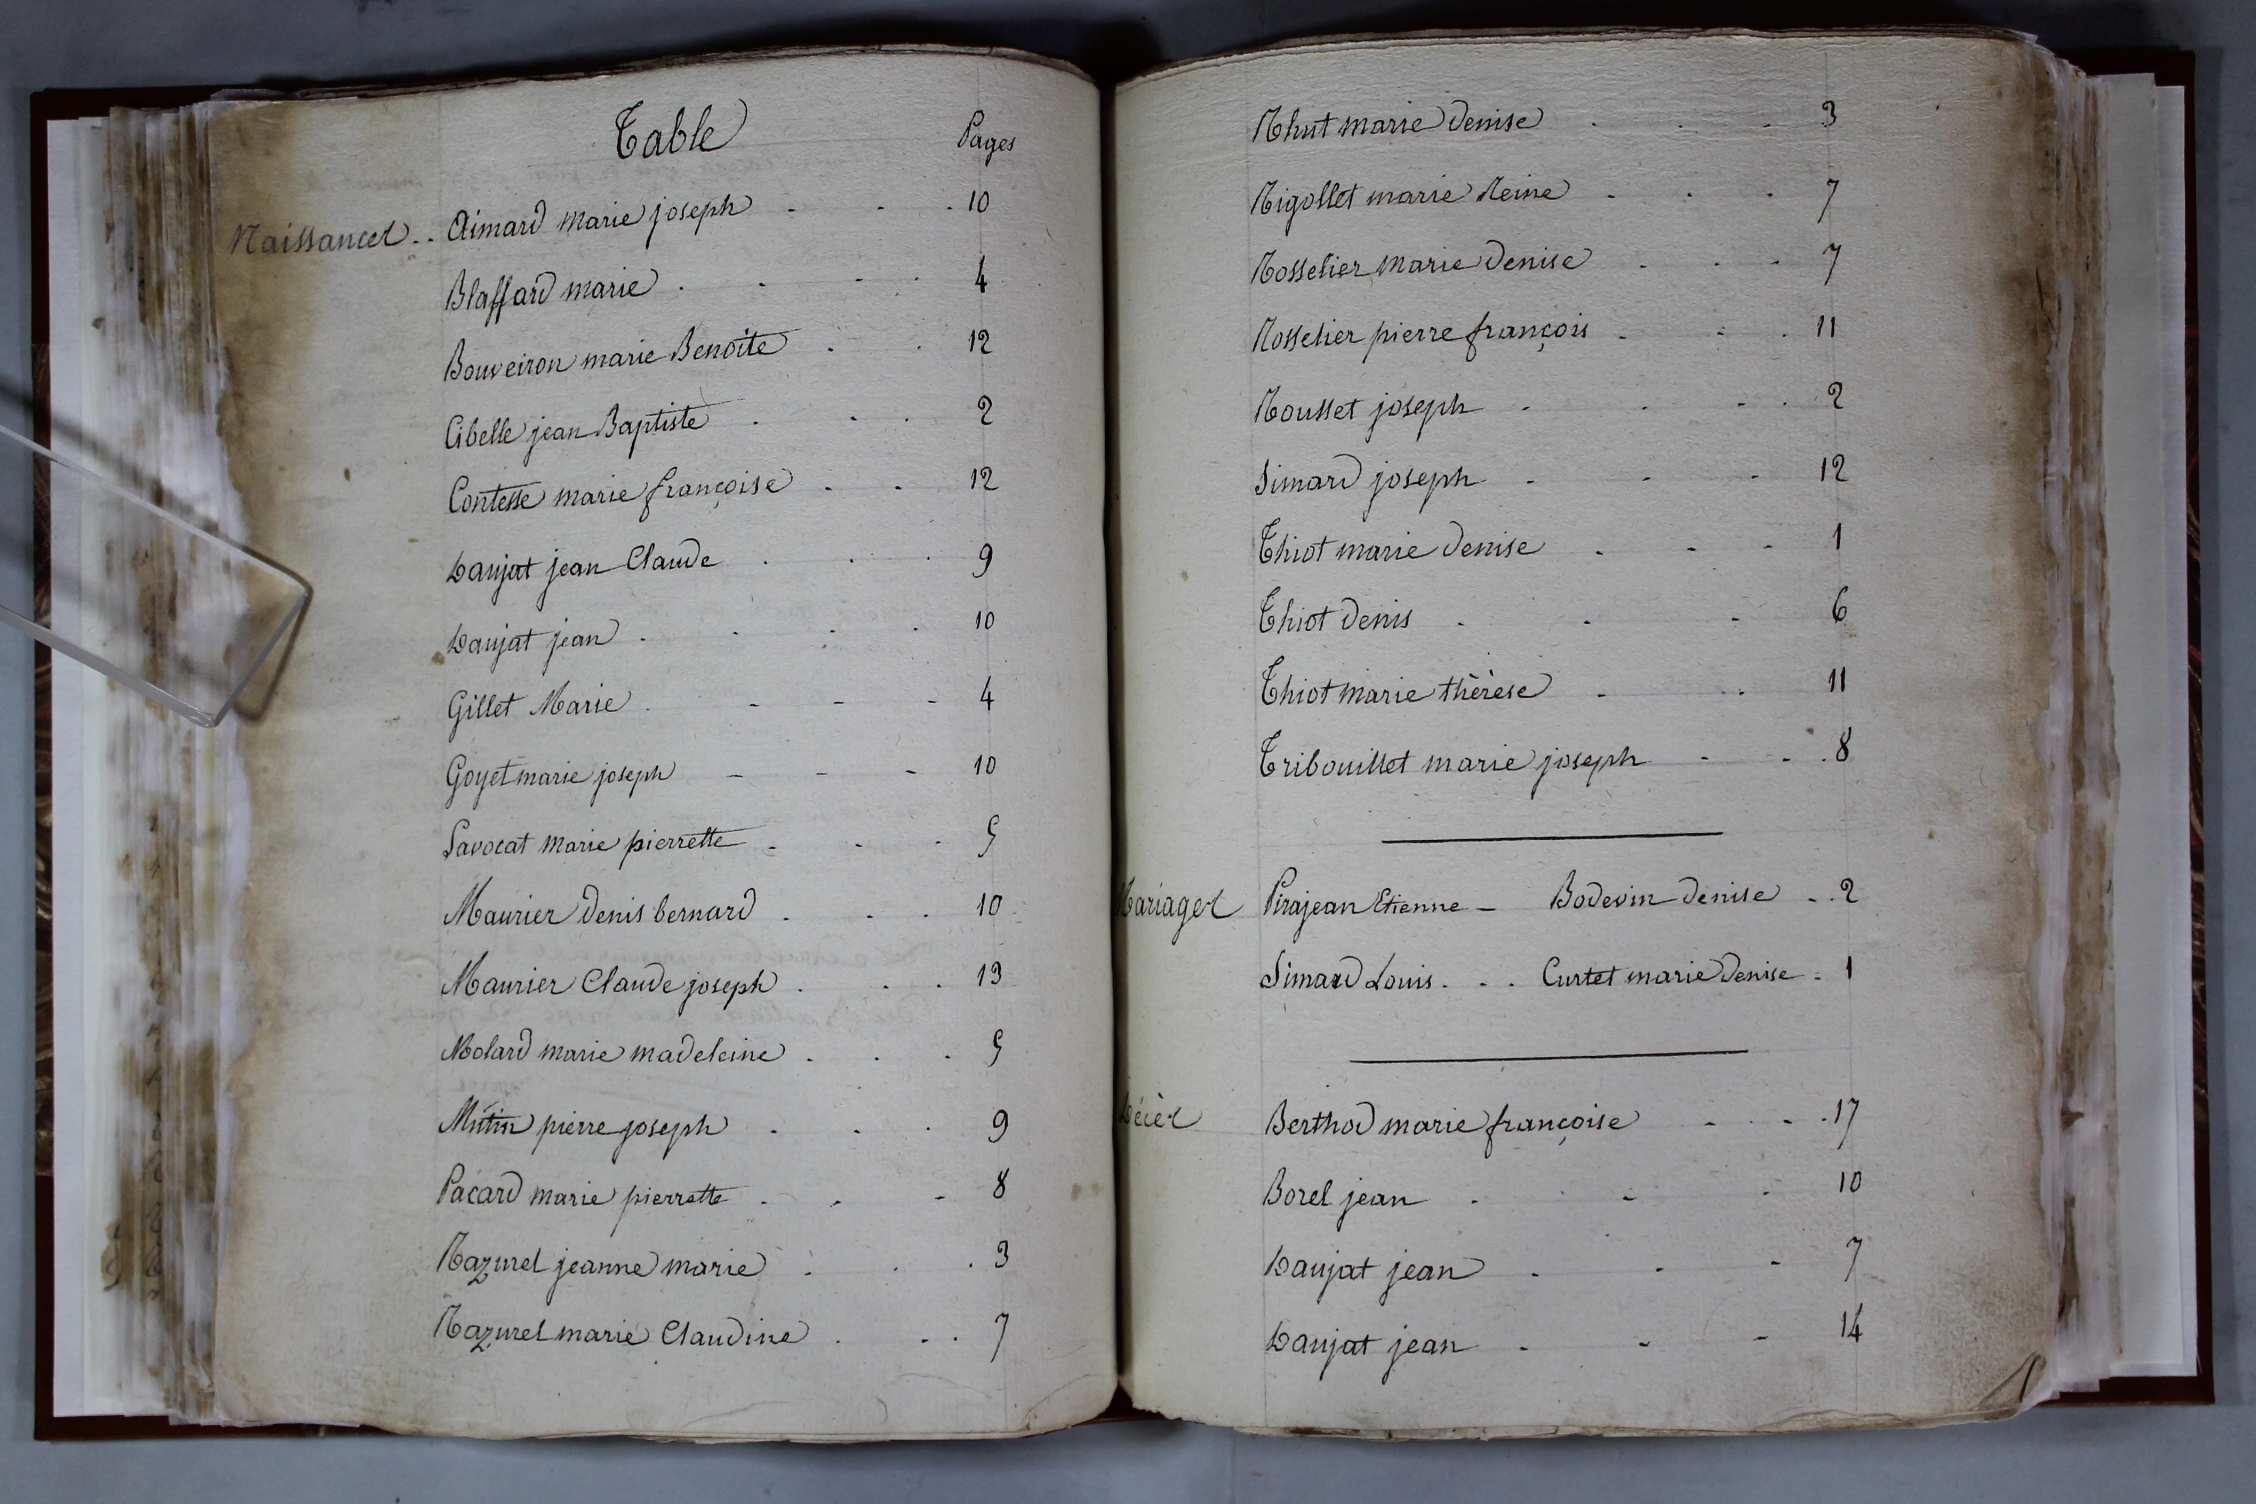 Table
Pages
Naissances.. Aimard marie joseph - - . 10
Blaffard marie . - - . 4
Bouveiron marie Benoite . . 12
Cibelle jean Baptiste . . . 2
Contesse marie françoise . . 12
Daujat jean Claude . . . 9
Daujat jean . . . . 10
Gillet Marie . - - - 4
Goyet marie joseph - - - 10
Lavocat marie pierrette - . . 5
Maurier denis bernard . . . 10
Maurier Claude joseph . . . 13
Molard marie madeleine . . . 5
Mutin pierre joseph . . . 9
Pacard marie pierrette . . - 8
Razurel jeanne marie . . . 3
Razurel marie Claudine . . . 7
Rhut marie denise . . - 3
Rigollet marie Reine . . . 7
Rosselier marie denise . . - 7
Rosselier pierre françois . . . 11
Rousset joseph . . - . 2
Simard joseph - - - 12
Thiot marie denise . - - 1
Thiot denis . . - 6
Thiot marie thérèse - - . 11
Tribouillet marie joseph . - . 8
Mariages Pirajean Etienne - Bodevin denise . . 2
Simard Louis . . . Curtet marie denise - 1
Décès Berthod marie françoise - . - . 17
Borel jean . - - 10
Daujat jean . . - 7
Daujat jean . - - 14